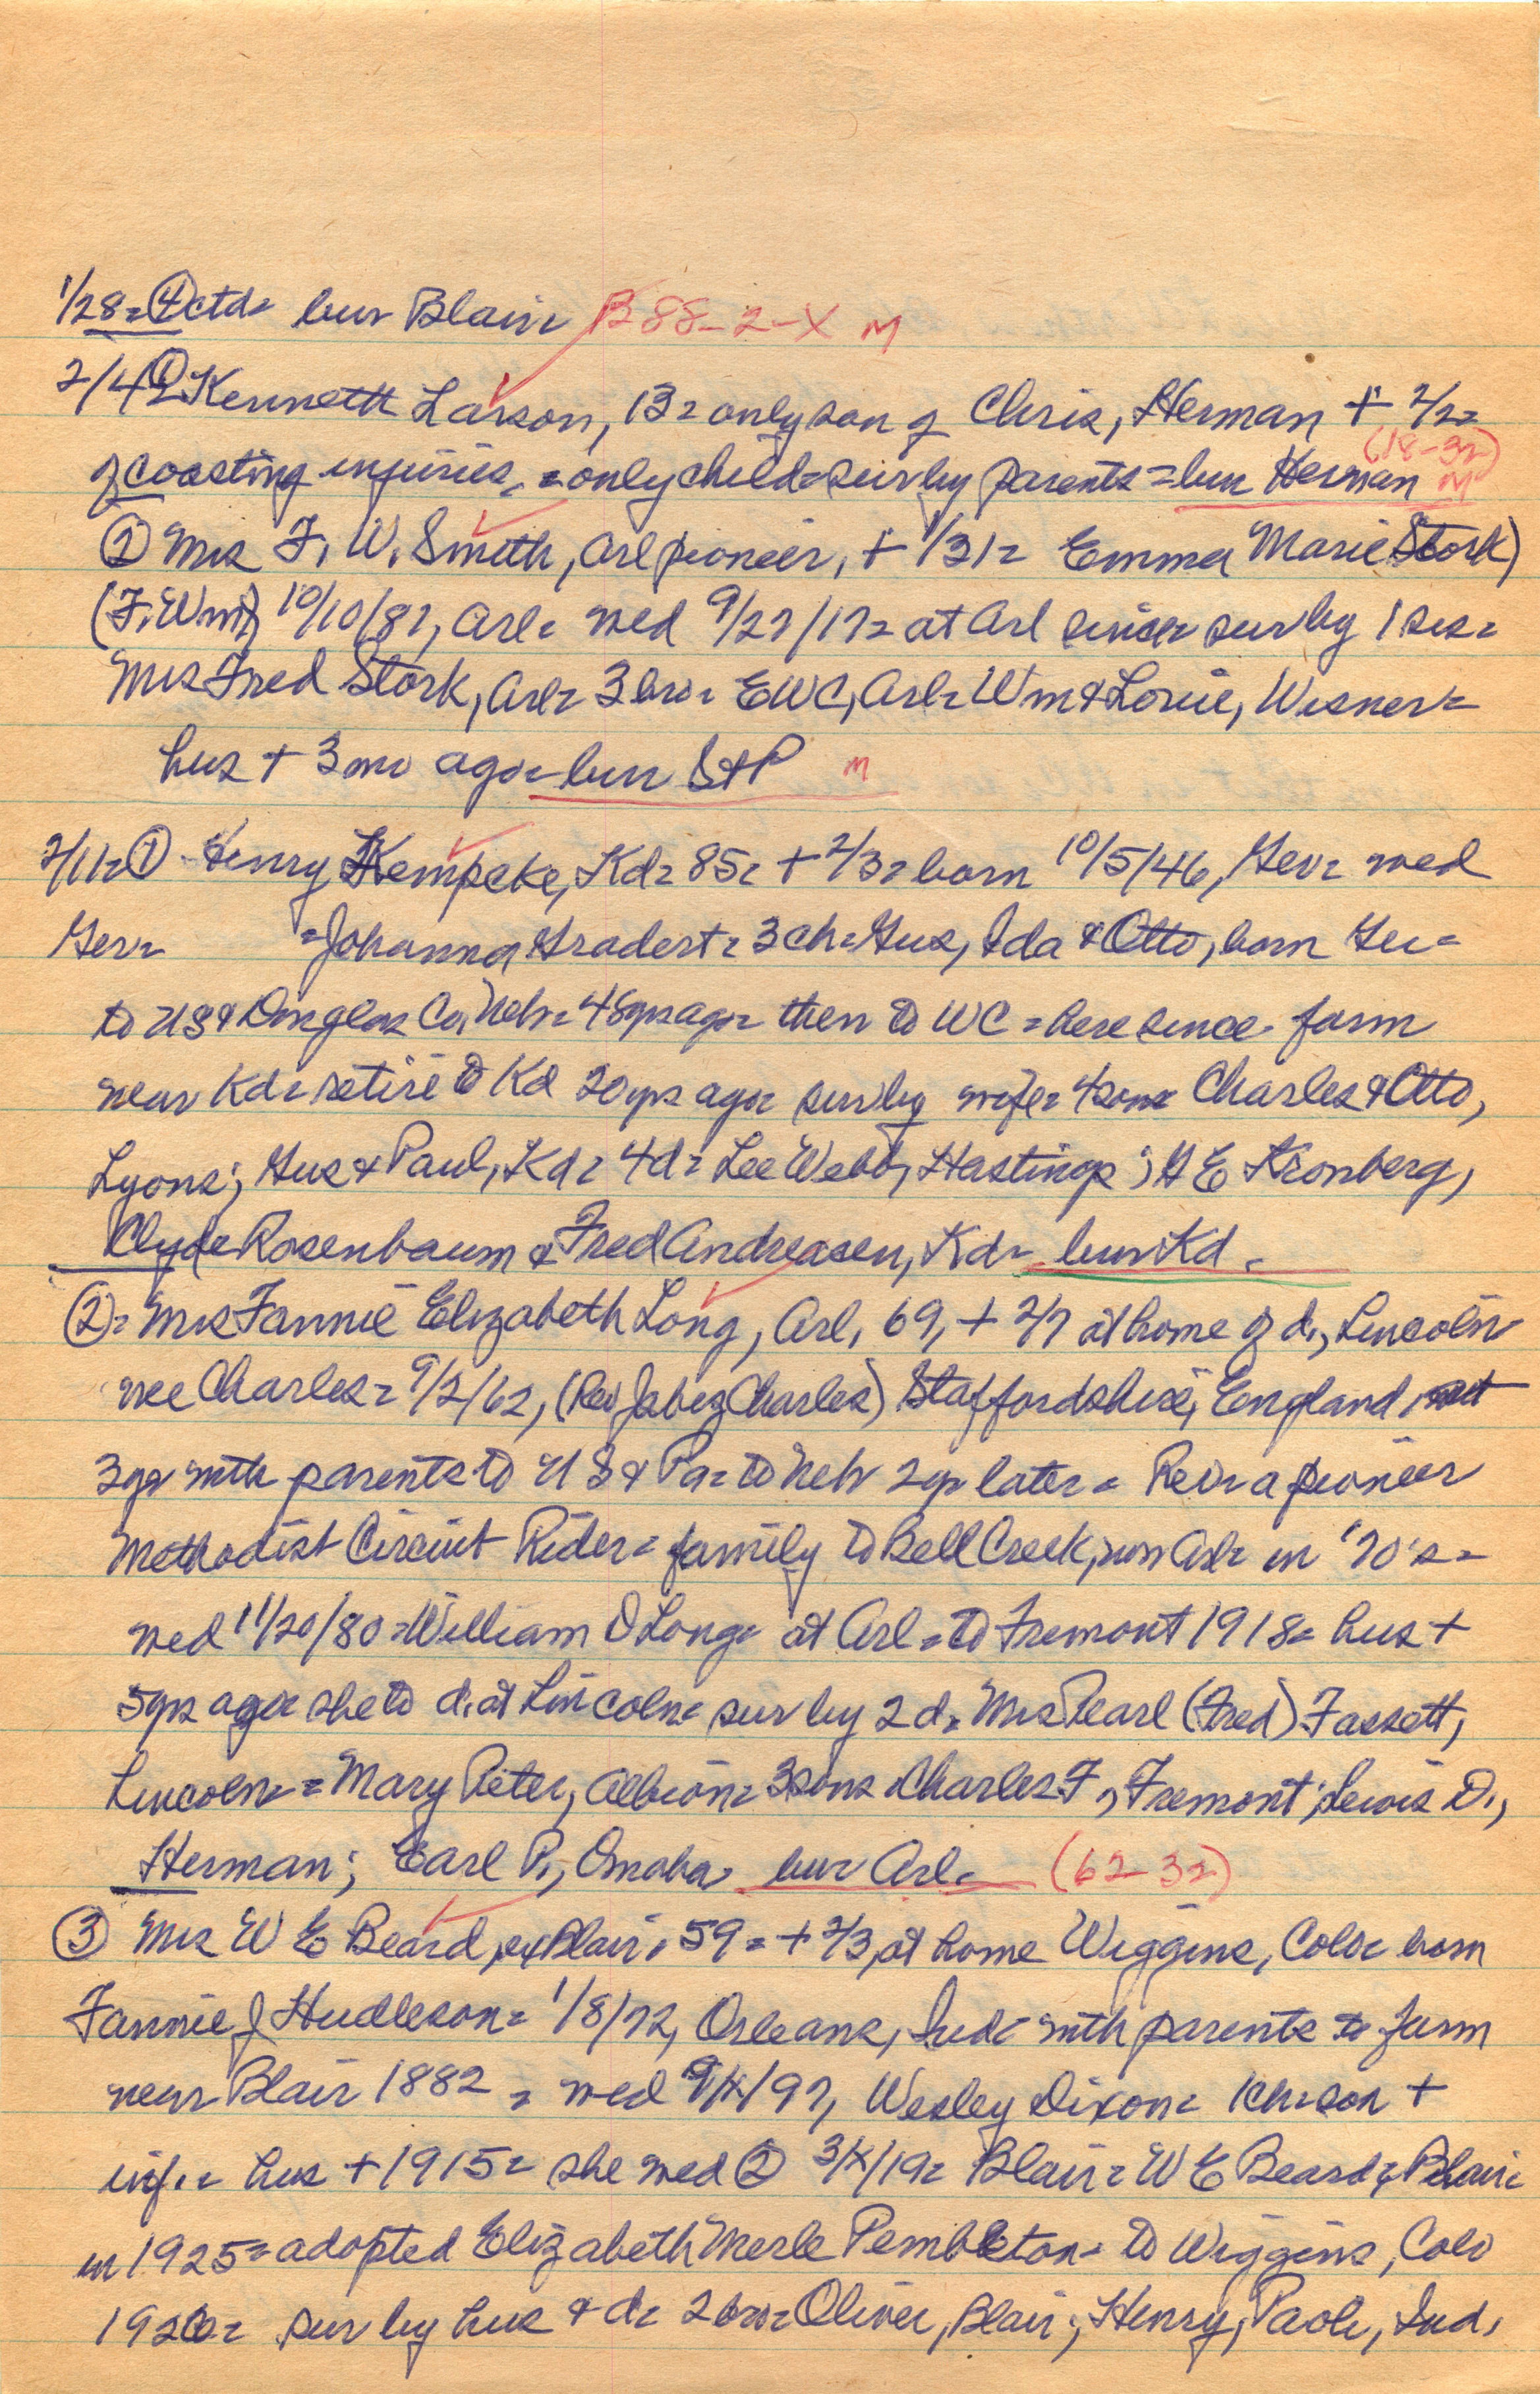 1/28= ④ ctd= bur Blair= B88-2-X M
2/4= ① Kenneth Larson, 13= only son of Chris, Herman + 2/2=
of coasting injuries,= only child= sur by parents= bur Herman (18-32) M
② Mrs F. W. Smith, Arl pioneer, + 1/31= Emma Marie Stork)
(F. Wm) 10/10/87, Arl= wed 9/27/17= at Arl since= sur by 1 sis=
Mrs Fred Stork, Arl= 3 bro= EWC, Arl= Wm & Louie, Wisner=
hus + 3 mo ago= bur StP M
2/11= ① Henry Kempcke, Kd= 85= + 2/3= born 10/5/46, Ger= wed
Ger= =Johanna Gradert= 3 ch= Gus, Ida & Otto, born Ger=
to US & Douglas Co, Neb= 48 yrs ago= then to WC= here since= farm
near Kd= retire to Kd 20 yrs ago= sur by wife= 4 sons= Charles & Otto,
Lyons; Gus & Paul, Kd= 4 d= Lee Webb, Hastings; G E Kronberg,
Clyde Rosenbaum & Fred Andreasen, Kd= bur Kd=
②= Mrs Fannie Elizabeth Long, Arl, 69, + 2/7 at home of d., Lincoln
nee Charles= 9/2/62, (Rev Jabez Charles) Staffordshire, England, at
3 yr with parents to US & Pa= to Neb 2 yr later= Rev= a pioneer
Methodist Circuit Rider= family to Bell Creek, now Arl= in '70's=
wed 11/20/80= William D Long= at Arl= to Fremont 1918= hus +
5 yrs ago= she to d. at Lincoln= sur by 2 d= Mrs Pearl (Fred) Fassett,
Lincoln= = Mary Peter, Albion= 3 sons Charles F, Fremont; Lewis D.,
Herman; Earl P., Omaha= bur Arl= (62-32)
③ Mrs W E Beard, ex Blair, 59= + 2/3, at home Wiggins, Colo= born
Fannie J Hudleson= 1/8/72, Orleans, Ind= with parents to farm
near Blair 1882= wed 9/x/97, Wesley Dixon= 1 ch= son +
inf.= hus + 1915= she wed ② 3/x/19= Blair= W E Beard, Blair=
in 1925= adopted Elizabeth Merle Pembleton= to Wiggins, Colo
1926= sur by hus & d= 2 bro= Oliver, Blair; Henry, Paoli, Ind.